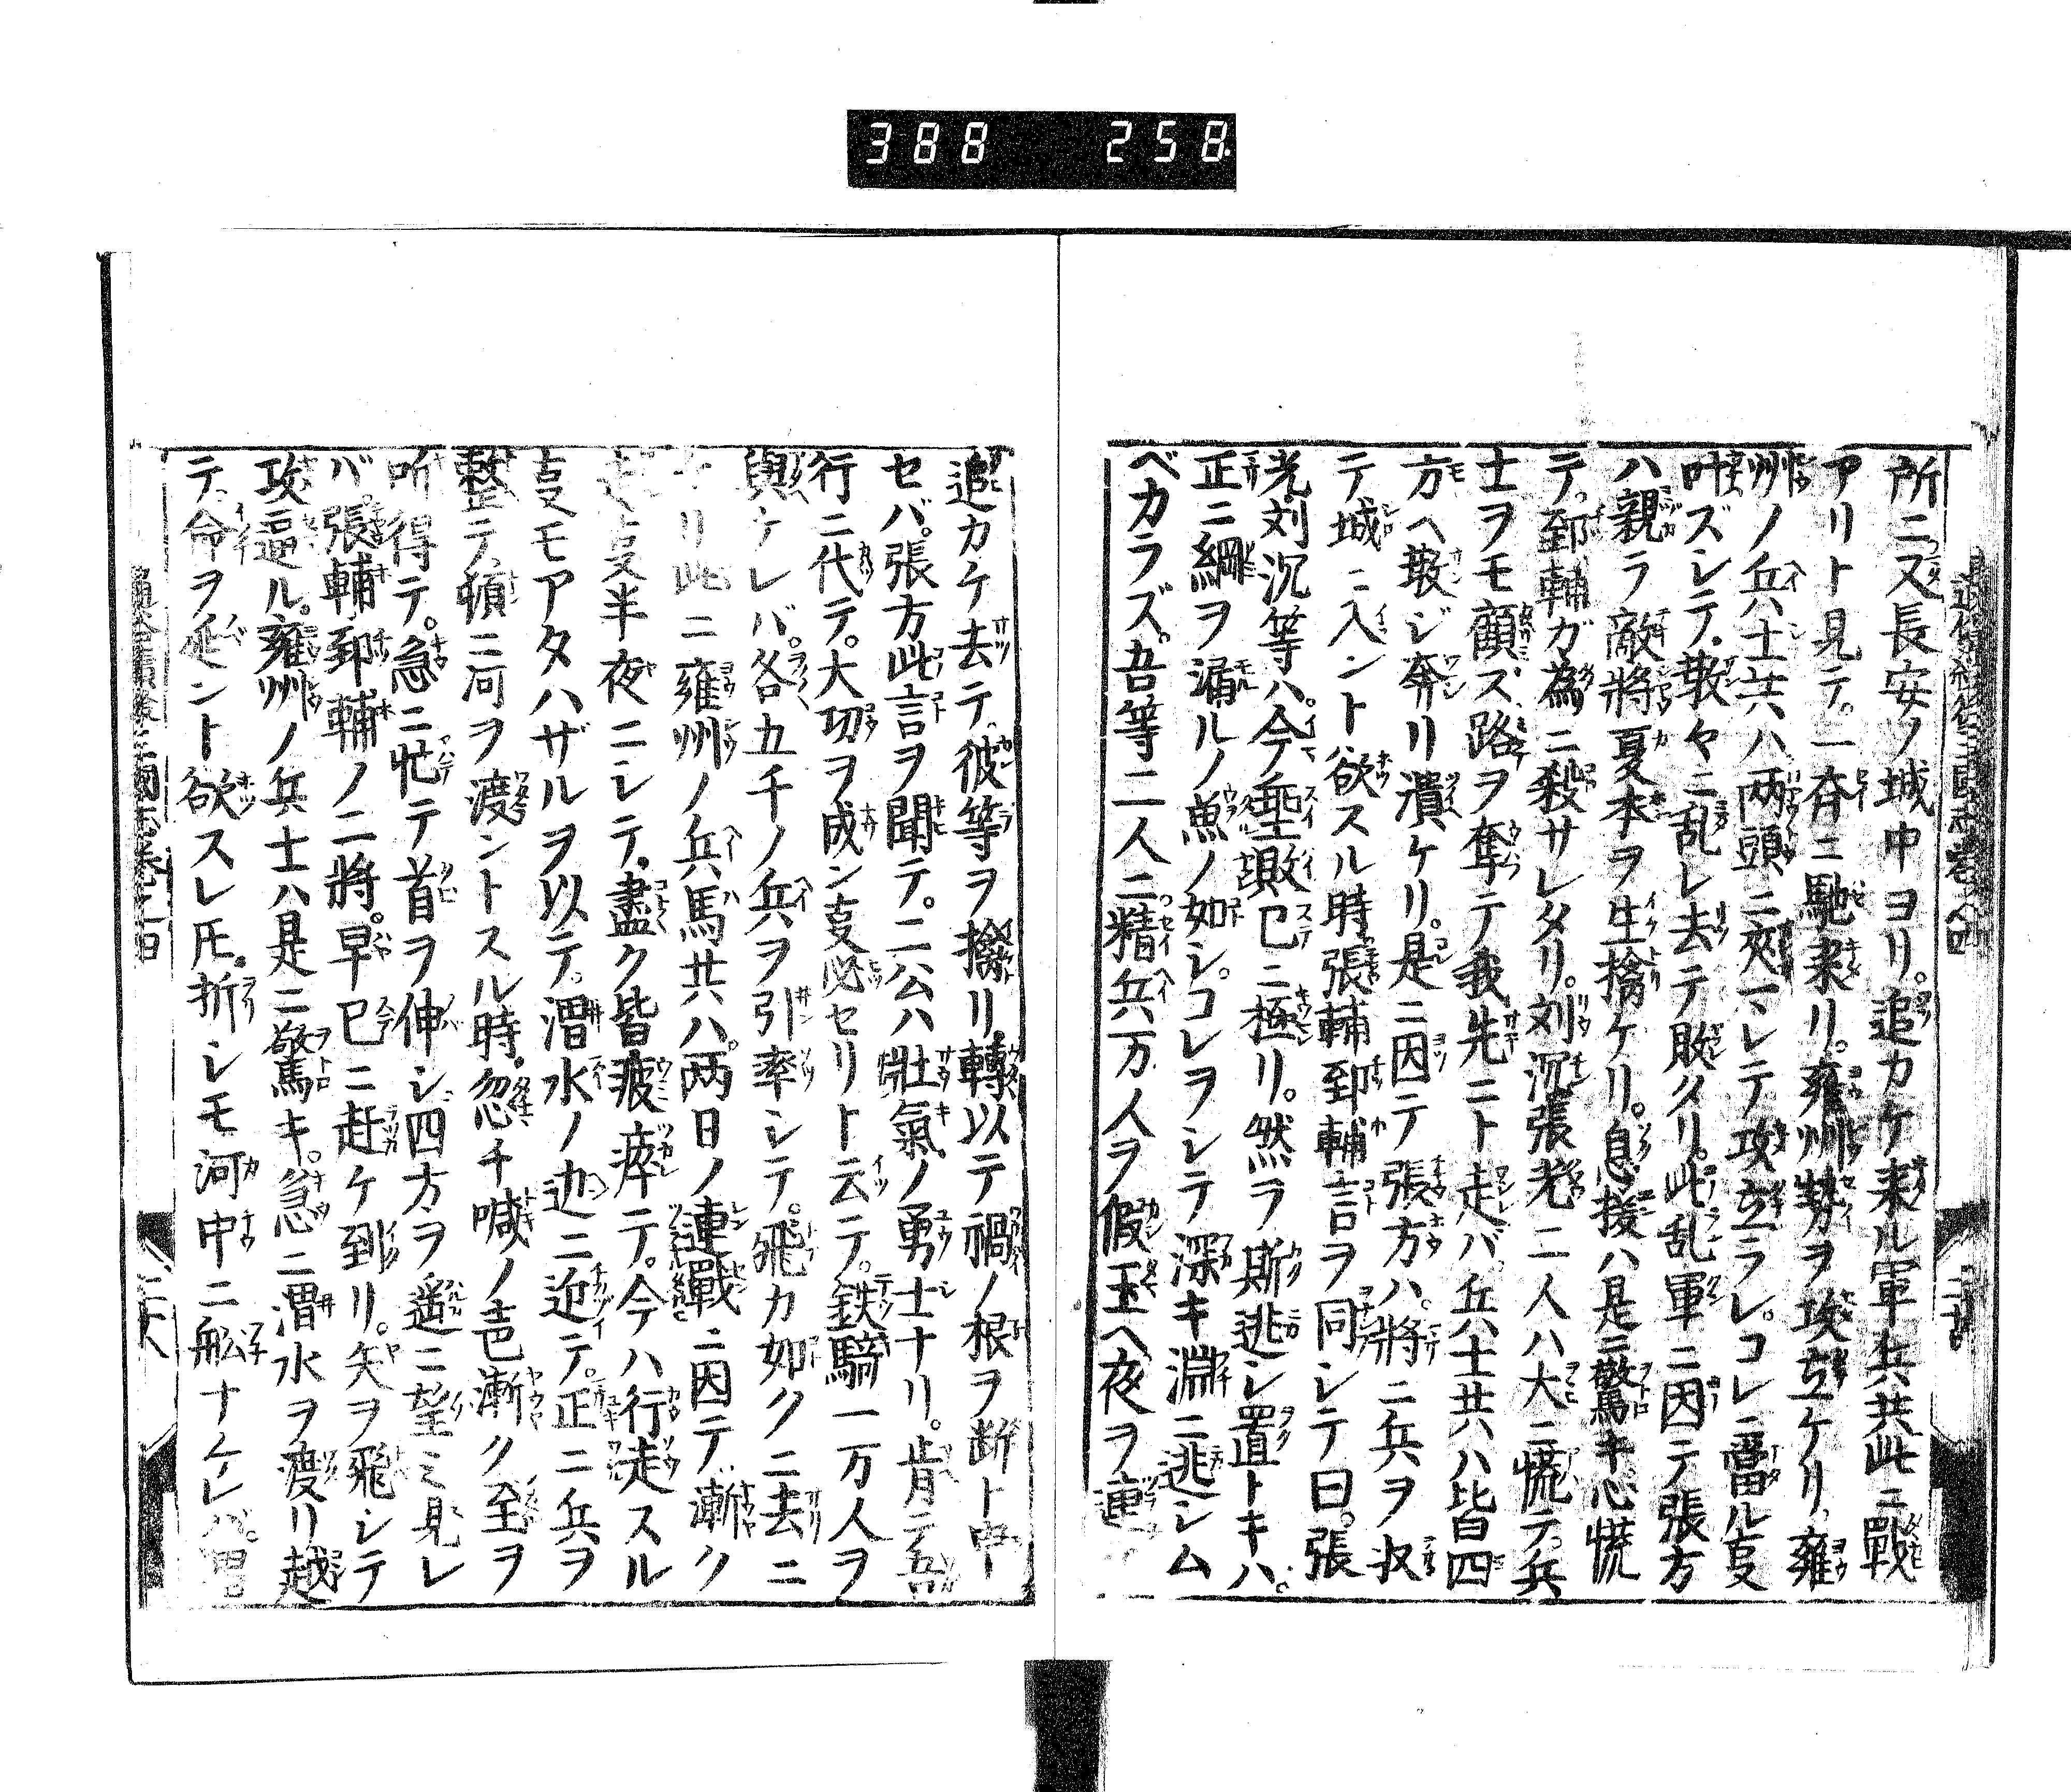 388 258
所ニ又長安ノ城中ヨリ。追カケ来ル軍兵共此ニ戰
アリト見テ。一斉ニ馳来リ。雍州勢ヲ攻立ケリ。雍
州ノ兵士共ハ両頭ニ夾マレテ攻立ラレ。コレニ當ル叓
叶ズシテ。散々ニ乱レ去テ敗クリ。此乱軍ニ因テ張方
ハ親ラ敵將夏本ヲ生擒ケリ。息接ハ是ニ驚キ心慌
テ。郅輔ガ為ニ殺サレタリ。刘沉張光二人ハ大ニ慌テ。兵
士ヲモ顧ス。路ヲ奪テ我先ニト走バ。兵士共ハ皆四
方ヘ散ジ奔リ潰ケリ。是ニ因テ張方ハ。將ニ兵ヲ収
テ城ニ入ント欲スル時。張輔郅輔言ヲ同シテ曰。張
光刘沉等ハ。今垂敗已ニ極リ。然ラ斯逃シ置トキハ。
正ニ綱ヲ漏ルノ魚ノ如シ。コレヲシテ深キ淵ニ逃シム
ベカラズ。吾等二人ニ精兵一万人ヲ假玉ヘ。夜ヲ連
追カケ去テ。彼等ヲ擒リ。轉以テ禍ノ根ヲ断ト申
セバ。張方此言ヲ聞テ。二公ハ壯氣ノ勇士ナリ。肯テ吾
行ニ代テ。大切ヲ成ン叓必セリト云テ。鉄騎一万人ヲ
與ケレバ。各五千ノ兵ヲ引率シテ。飛カ如クニ去ニ
リ此ニ雍州ノ兵馬共ハ。両日ノ連戰ニ因テ。漸ク
叓半夜ニシテ。盡ク皆疲瘁テ。今ハ行走スル
叓モアタハザルヲ以テ。渭水ノ辺ニ近テ。正ニ兵ヲ
整テ。頓ニ河ヲ渡ントスル時。忽チ喊ノ声漸ク至ヲ
听得テ。急ニ忙テ首ヲ伸シ四方ヲ遥ニ望ミ見レ
バ。張輔郅輔ノ二將。早已ニ赶ケ到リ。矢ヲ飛シテ
攻逼ル。雍州ノ兵士ハ是ニ驚キ。急ニ渭水ヲ渡リ越
テ。命ヲ延ント欲スレ𪜈。折シモ河中ニ舩ナケレバ。